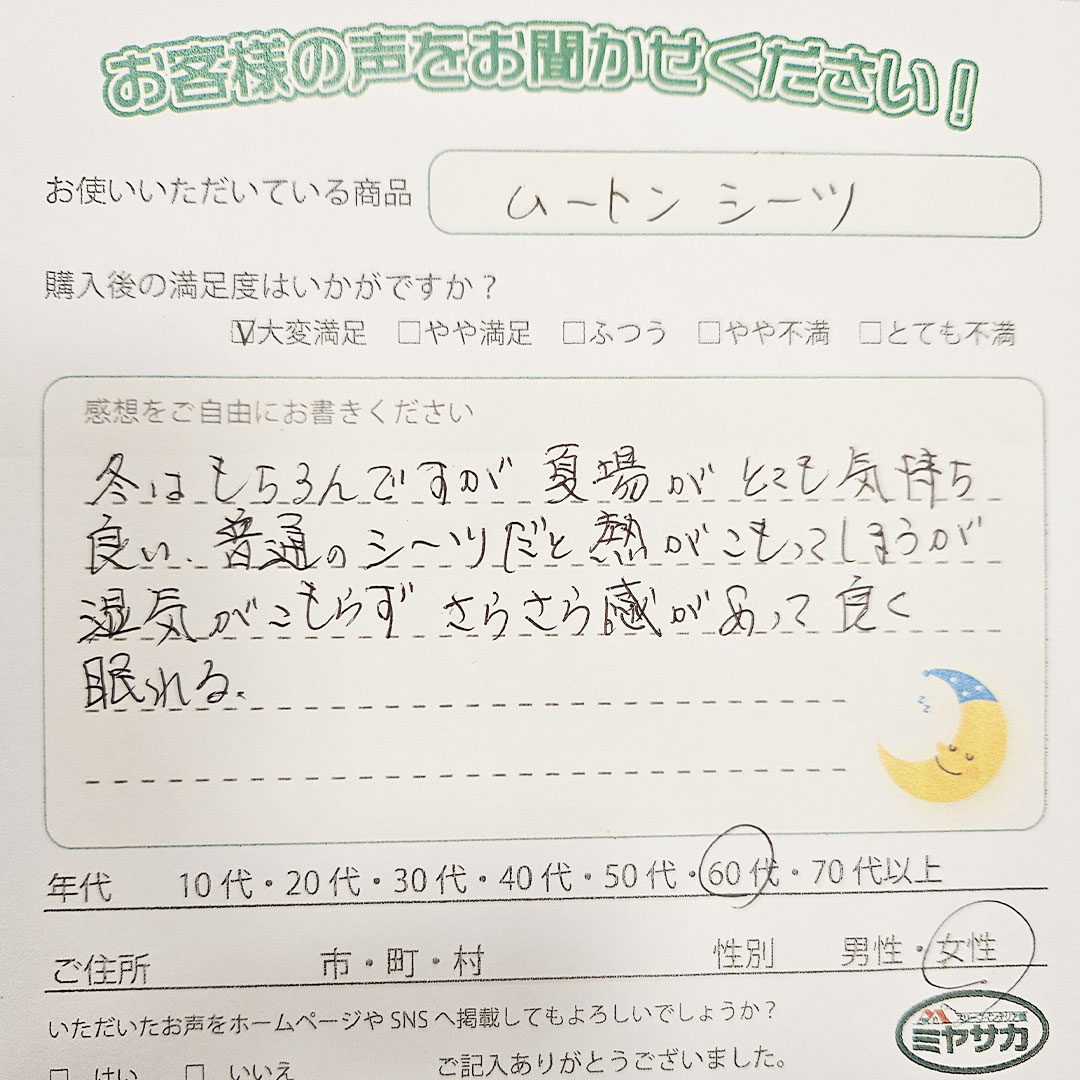 お客様の声をお聞かせください!
お使いいただいている商品 ムートンシーツ
購入後の満足度はいかがですか?
☑大変満足 □やや満足 □ふつう □やや不満 □とても不満
感想をご自由にお書きください
冬はもちろんですが夏場がとても気持ち
良い、普通のシーツだと熱がこもってしまうが
湿気がこもらずさらさら感があって良く
眠れる。
年代 10代・20代・30代・40代・50代・60代・70代以上
ご住所 市・町・村 性別 男性・女性
いただいたお声をホームページやSNSへ掲載してもよろしいでしょうか?
□ はい □ いいえ ご記入ありがとうございました。
ミヤサカ